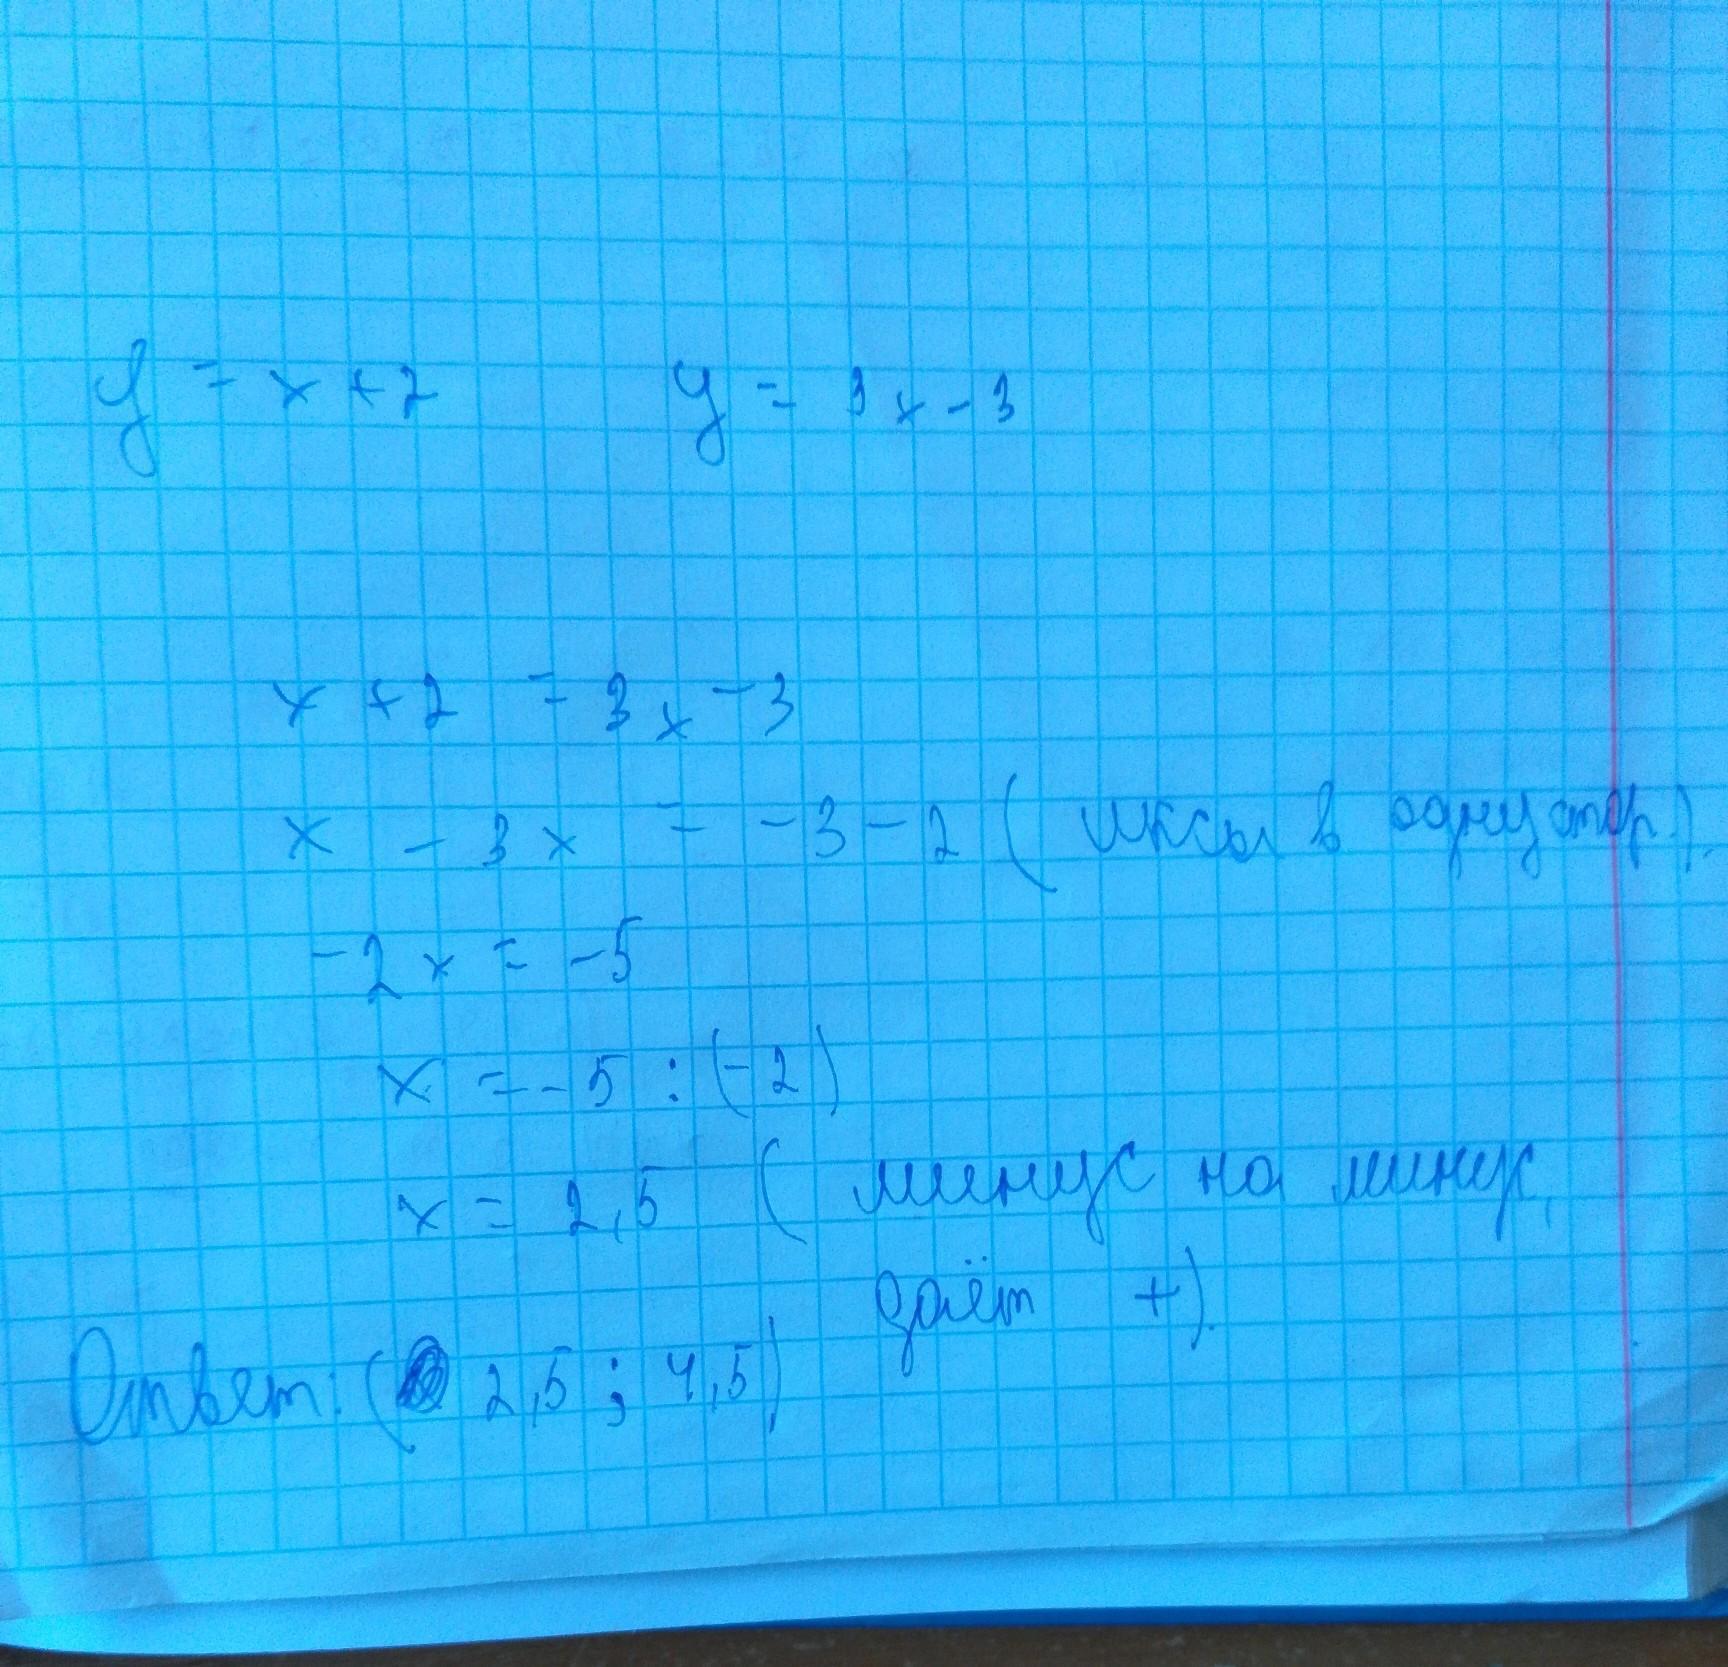 y = x + 2 y = 3x - 3
x + 2 = 3x - 3
x - 3x = -3 - 2 (иксы в одну стор.).
-2x = -5
x = -5 : (-2)
x = 2,5 (минус на минус,
даёт +).
Ответ: (2,5 ; 4,5)